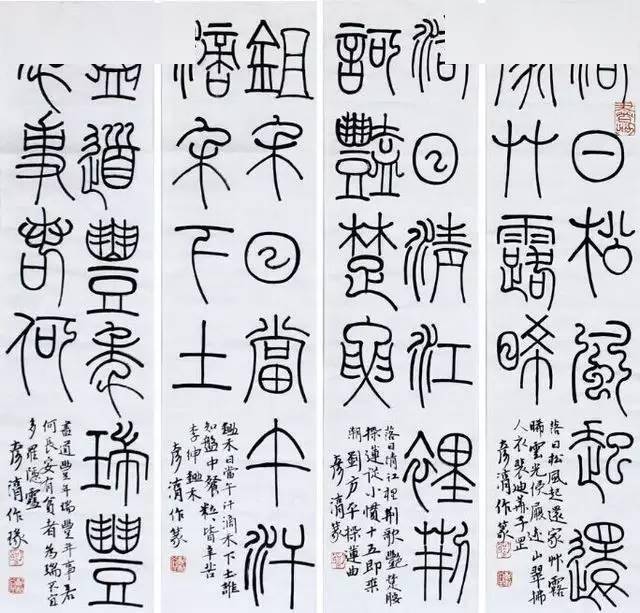 落日松風起還
家艸露晞
落日松風起還家艸露
晞雲光侵履迹山翠拂
人衣裴迪華子岡
作篆
落日清江裡荊
訶豔楚腰
落日清江裡荊歌艷楚腰
採蓮從小慣十五即乘
潮劉方平採蓮曲
篆
鉏禾日當午汗
滴禾下土
鋤禾日當午汗滴禾下土誰
知盤中餐粒〻皆辛苦
李紳鋤禾
作篆
盡道豐年瑞豐
年事若何
盡道豐年瑞豐年事若
何長安有貧者為瑞不宜
多羅隱雪
作篆